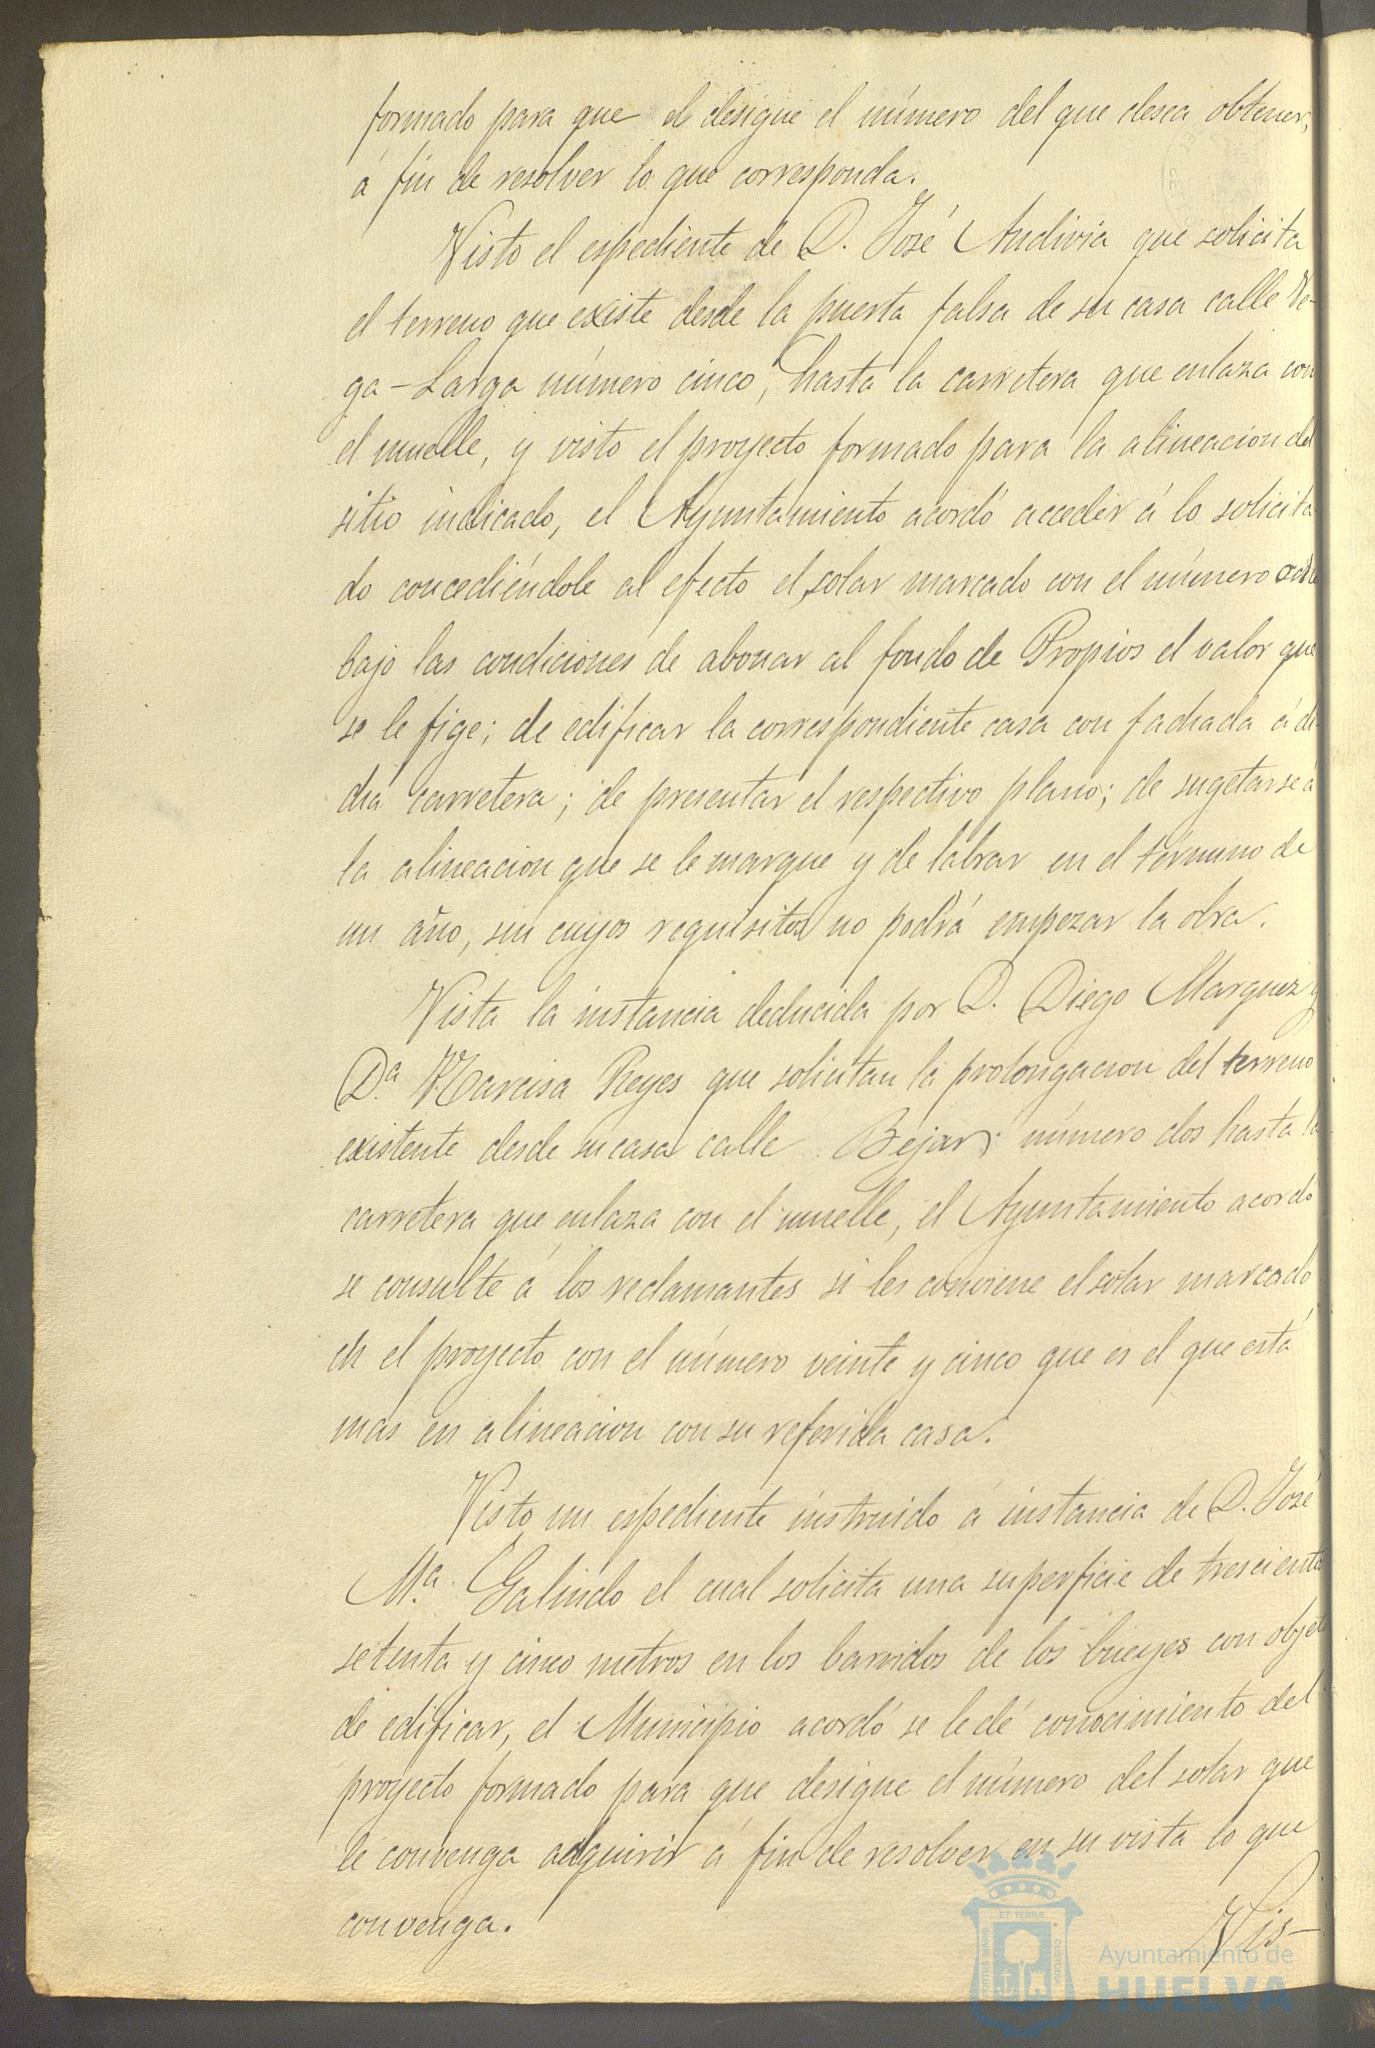 formado para que el desigue el número del que desea obtener,
á fin de resolver lo que corresponda.
Visto el espediente de D. José Andivia que solicita
el terreno que existe desde la puerta falsa de su casa calle Ve-
ga-Larga número cinco, hasta la carretera que enlaza con
el muelle, y visto el proyecto formado para la alineacion del
sitio indicado, el Ayuntamiento acordó acceder á lo solicita-
do concediéndole al efecto el solar marcado con el número
bajo las condiciones de abonar al fondo de Propios el valor que
se le fige; de edificar la correspondiente casa con fachada á di-
cha carretera; de presentar el respectivo plano; de sugetarse á
la alineacion que se le marque y de labrar en el término de
un año, sin cuyos requisitos no podrá empezar la obra.
Vista la instancia deducida por D. Diego Marquez y
Dª Narcisa Reyes que solicitan la prolongacion del terreno
existente desde su casa calle Bejar, número dos hasta la
carretera que enlaza con el muelle, el Ayuntamiento acordó
se consulte á los reclamantes si les conviene el solar marcado
en el proyecto con el número veinte y cinco que es el que está
mas en alineacion con su referida casa.
Visto un espediente instruido á instancia de D. José
Mª. Galindo el cual solicita una superficie de trescientos
setenta y cinco metros en los barridos de los bueyes con objeto
de edificar, el Municipio acordó se le dé conocimiento del
proyecto formado para que desigue el número del solar que
le convenga adquirir á fin de resolver en su vista lo que
convenga.
Vis-
Ayuntamiento de
HUELVA